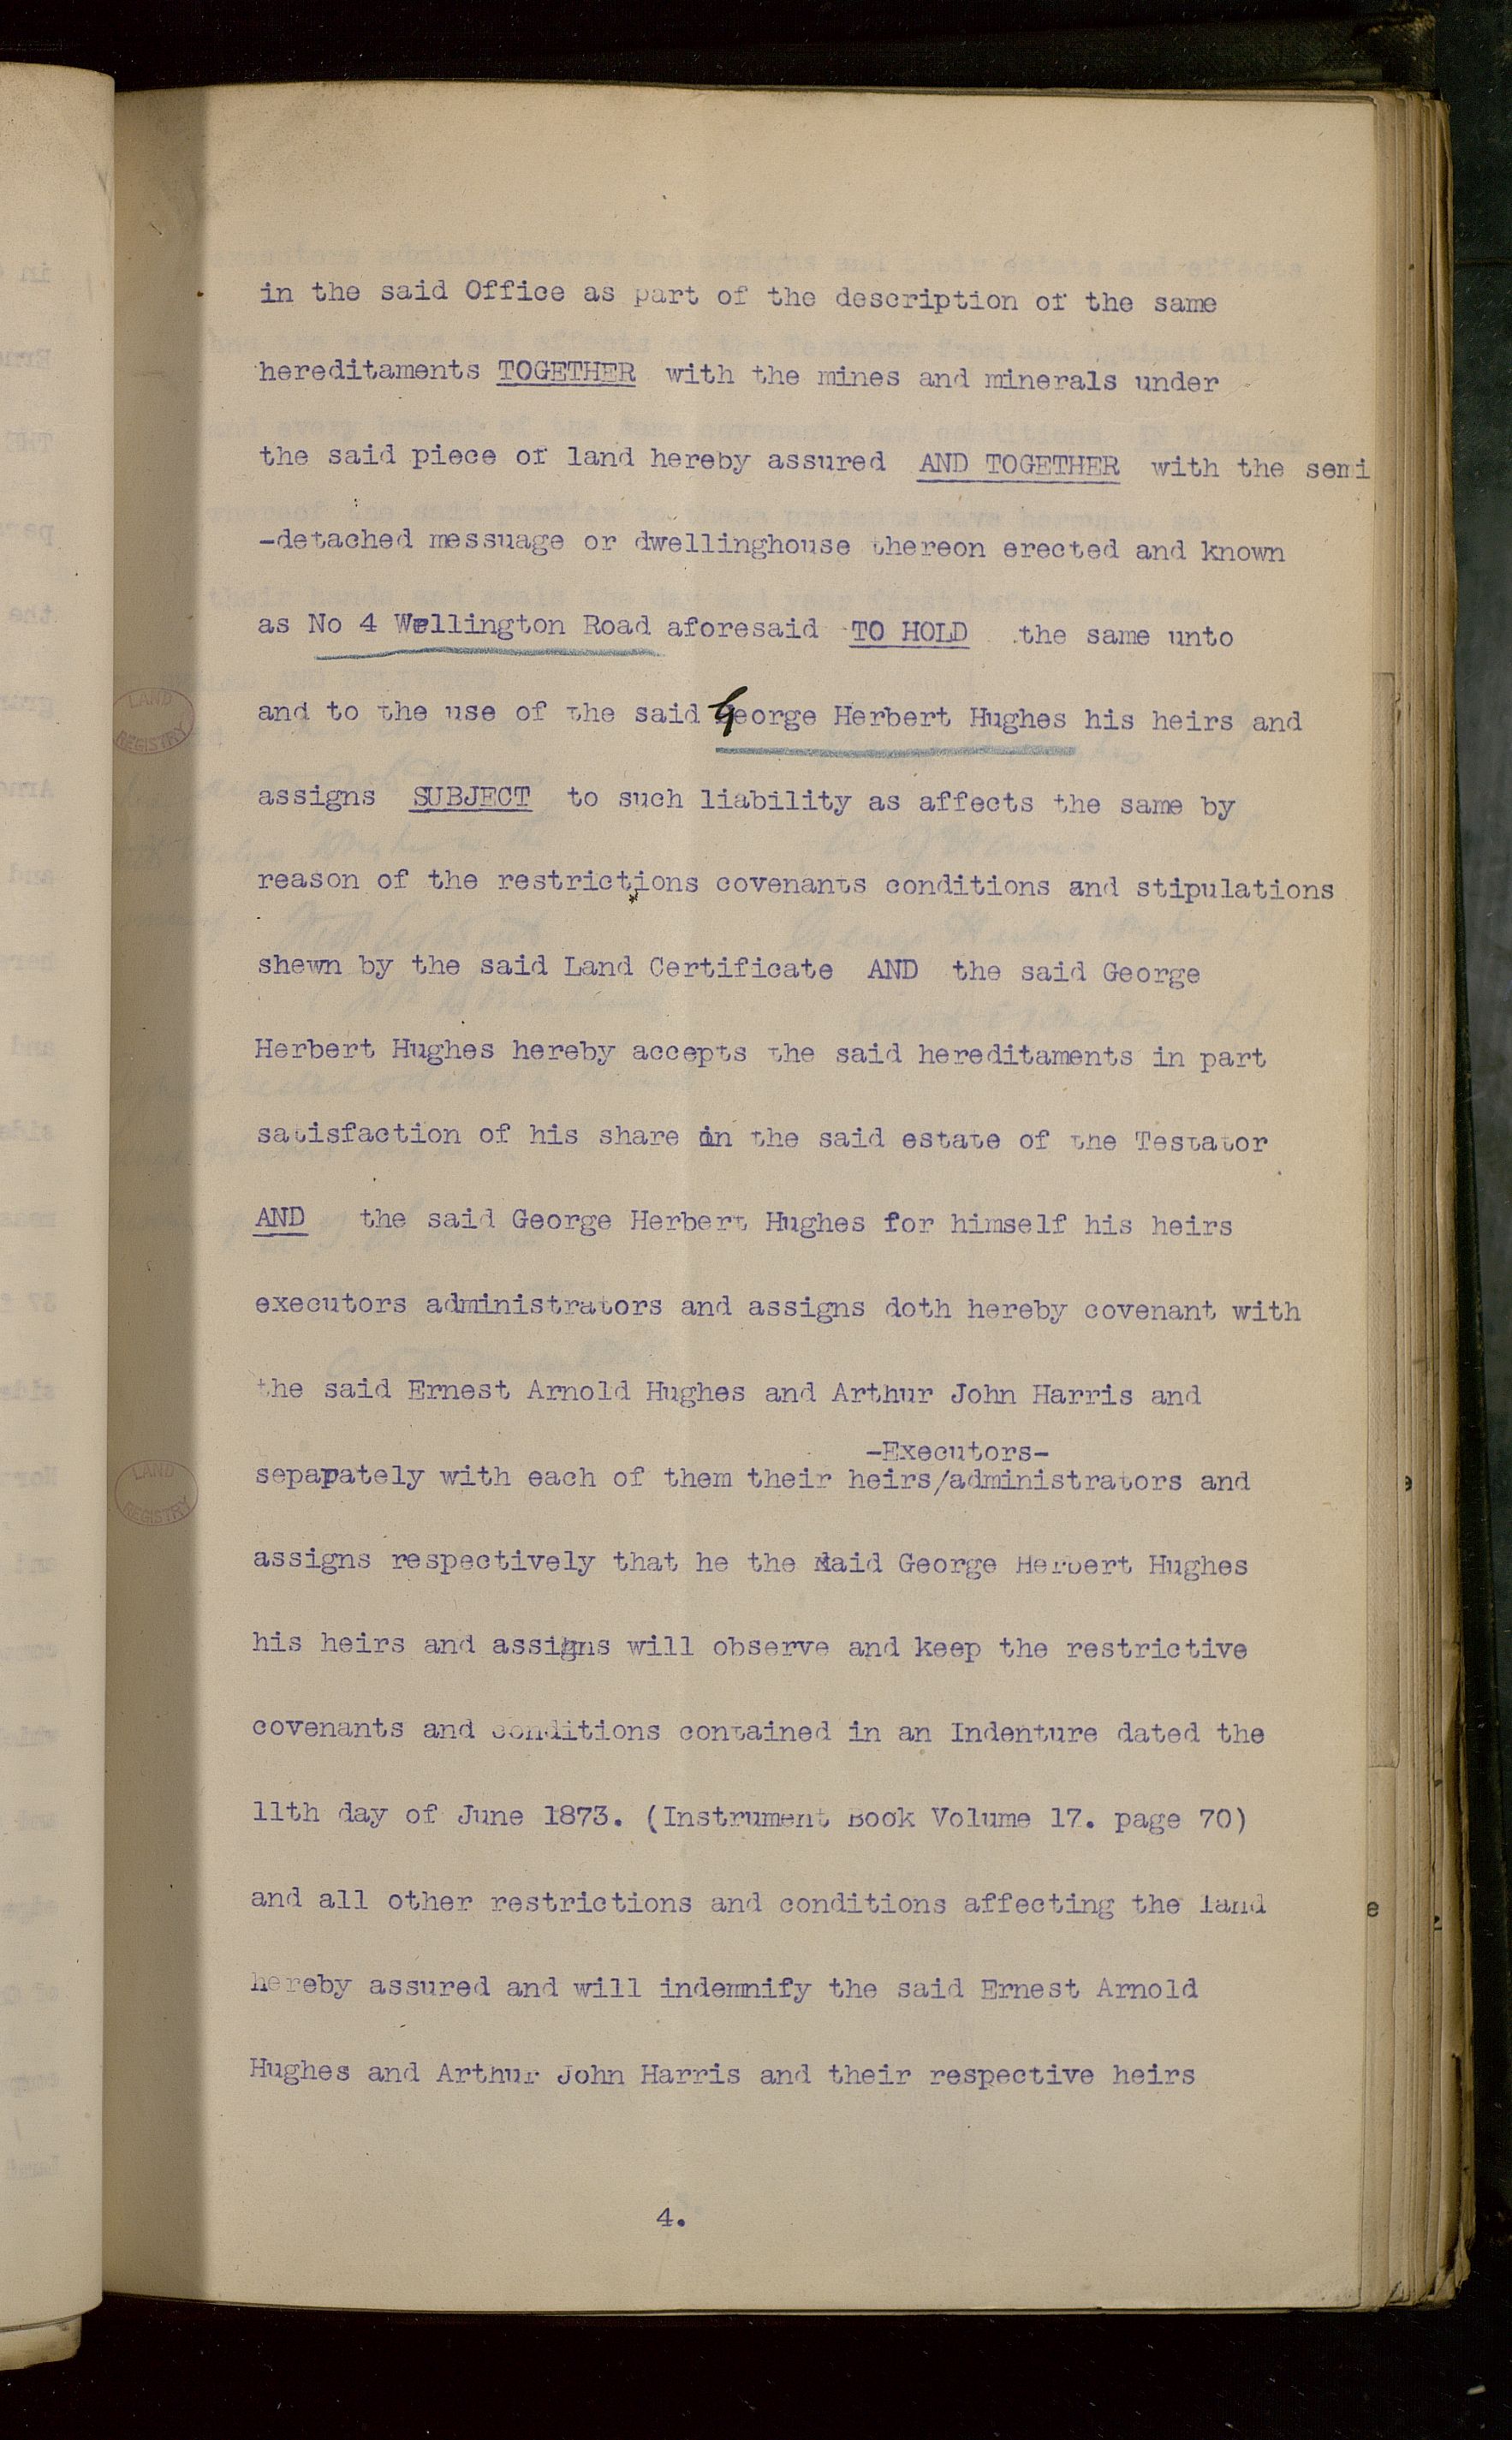 in the said Office as part of the description of the same
hereditaments TOGETHER with the mines and minerals under
the said piece of land hereby assured AND TOGETHER with the semi
-detached messuage or dwellinghouse thereon erected and known
as No 4 Wellington Road aforesaid TO HOLD the same unto
and to the use of the said George Herbert Hughes his heirs and
assigns SUBJECT to such liability as affects the same by
reason of the restrictions covenants conditions and stipulations
shewn by the said Land Certificate AND the said George
Herbert Hughes hereby accepts the said hereditaments in part
satisfaction of his share in the said estate of the Testator
AND the said George Herbert Hughes for himself his heirs
executors administrators and assigns doth hereby covenant with
the said Ernest Arnold Hughes and Arthur John Harris and
-Executors-
separately with each of them their heirs/administrators and
assigns respectively that he the said George Herbert Hughes
his heirs and assigns will observe and keep the restrictive
covenants and conditions contained in an Indenture dated the
11th day of June 1873. (Instrument Book Volume 17. page 70)
and all other restrictions and conditions affecting the land
hereby assured and will indemnify the said Ernest Arnold
Hughes and Arthur John Harris and their respective heirs
4.
LAND REGISTRY
LAND REGISTRY